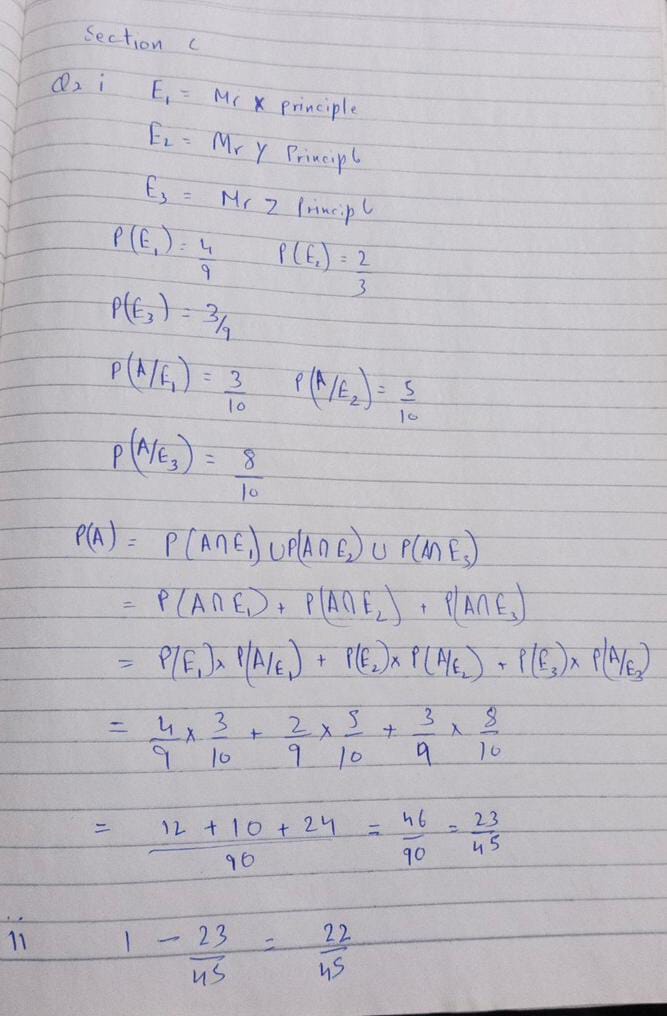 Section C
Q2 i E₁ = Mr X principle
E₂ = Mr Y Principl
E₃ = Mr Z Principl
P(E₁) = 4/9 P(E₂) = 2/3
P(E₃) = 3/9
P(A/E₁) = 3/10 P(A/E₂) = 5/10
P(A/E₃) = 8/10
P(A) = P(A∩E₁) ∪ P(A∩E₂) ∪ P(A∩E₃)
= P(A∩E₁) + P(A∩E₂) + P(A∩E₃)
= P(E₁) × P(A/E₁) + P(E₂) × P(A/E₂) + P(E₃) × P(A/E₃)
= 4/9 × 3/10 + 2/9 × 5/10 + 3/9 × 8/10
= 12 + 10 + 24/90 = 46/90 = 23/45
ii 1 - 23/45 = 22/45